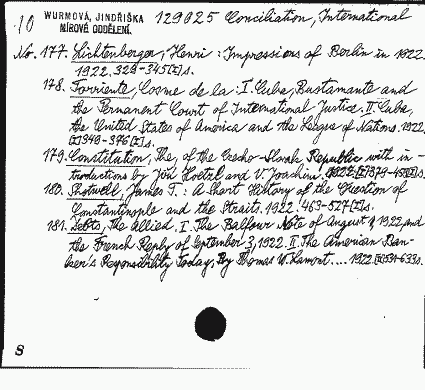 10 WURMOVÁ, JINDŘIŠKA 129025 Conciliation, International
MÍROVÉ ODDĚLENÍ.
No. 177. Lichtenberger, Henri: Impressions of Berlin in 1922.
1922. 329-345[I]s.
178. Torriente, Cosme de la: I. Cuba, Bustamante and
the Permanent Court of International Justice. II. Cuba,
the United States of America and the League of Nations. 1922.
349-376[I]s.
179. Constitution, The, of the Czecho-Slovak Republic with in-
troductions by Jiří Hoetzel and V. Joachim. 1922. 379-
180. Shotwell, James T.: A Short History of the Question of
Constantinople and the Straits. 1922. 463-527[I]s.
181. Debts, The Allied. I. The Balfour Note of August 1, 1922 and
the French Reply of September 3, 1922. II. The American Ban-
ker's Responsibility Today, By Thomas W. Lamont.... 1922. 531-633s.
S